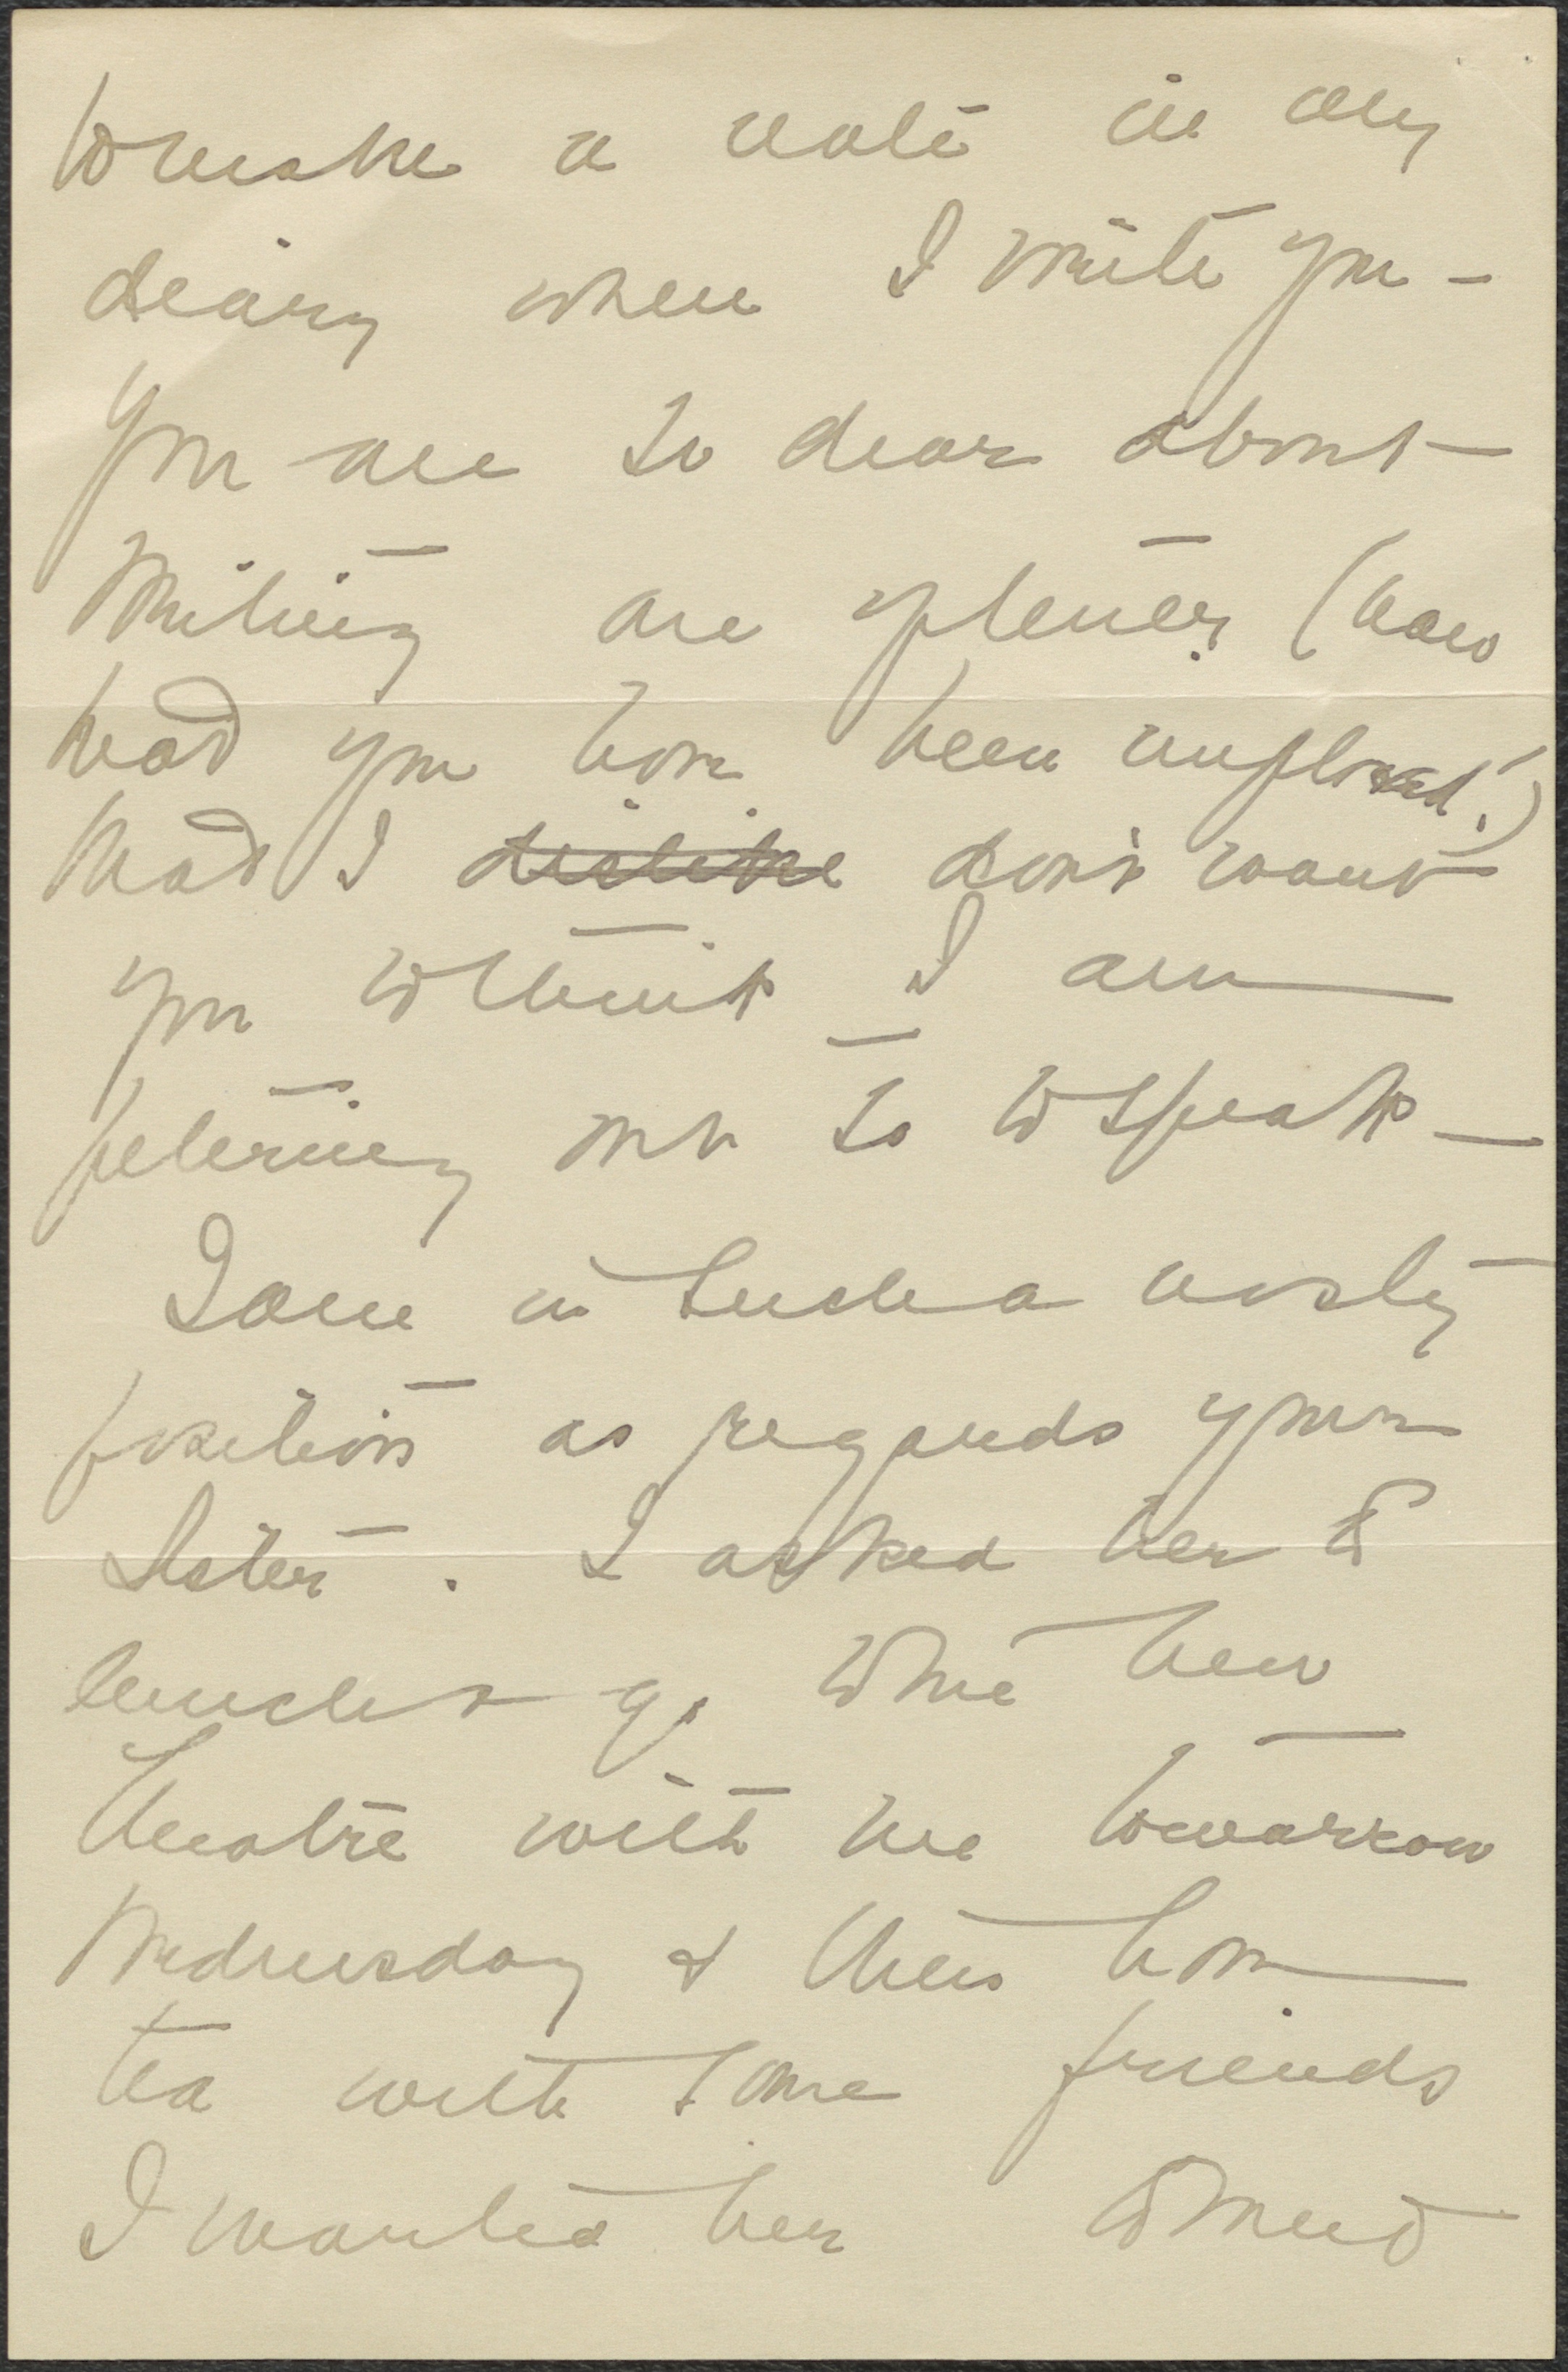 to make a note in my
diary when I write you -
You are so dear about
writing me plenty (how
had you have been implored!)
that I ~~dislike~~ don't want
you to think I am
petering out so to speak -
I am in such a nasty
position as regards your
Sister. I asked her to
lunch & go to the new
theatre with me tomorrow
Wednesday & then have
tea with some friends
I wanted her to meet